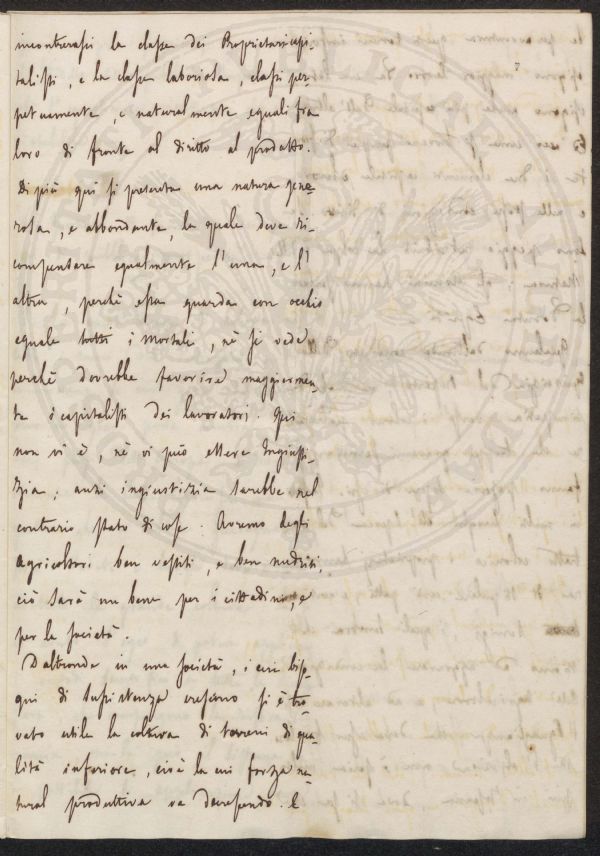 incontrarsi la classe dei Proprietari capi-
talisti, e la classe laboriosa, classi per-
petuamente, e naturalmente eguali fra
loro di fronte al diritto al prodotto.
Di più qui si presenta una natura gene-
rosa, e abbondante, la quale deve ri-
compensare egualmente l'una, e l'
altra, perchè essa guarda con occhio
eguale tutti i mortali, nè si vede
perchè dovrebbe favorire maggiormen-
te i capitalisti dei lavoratori. Qui
non vi è, nè vi può essere Ingiusti-
zia, anzi ingiustizia sarebbe nel
contrario stato di cose. Avremo degli
Agricoltori ben vestiti, e ben nudriti,
ciò sarà un bene per i cittadini, e
per la società.
D'altronde in una società, i cui biso-
gni di sussistenza crescano si è tro-
vato utile la coltura di terreni di qua-
lità inferiore, cioè la cui forza na-
tural produttiva va decrescendo. E